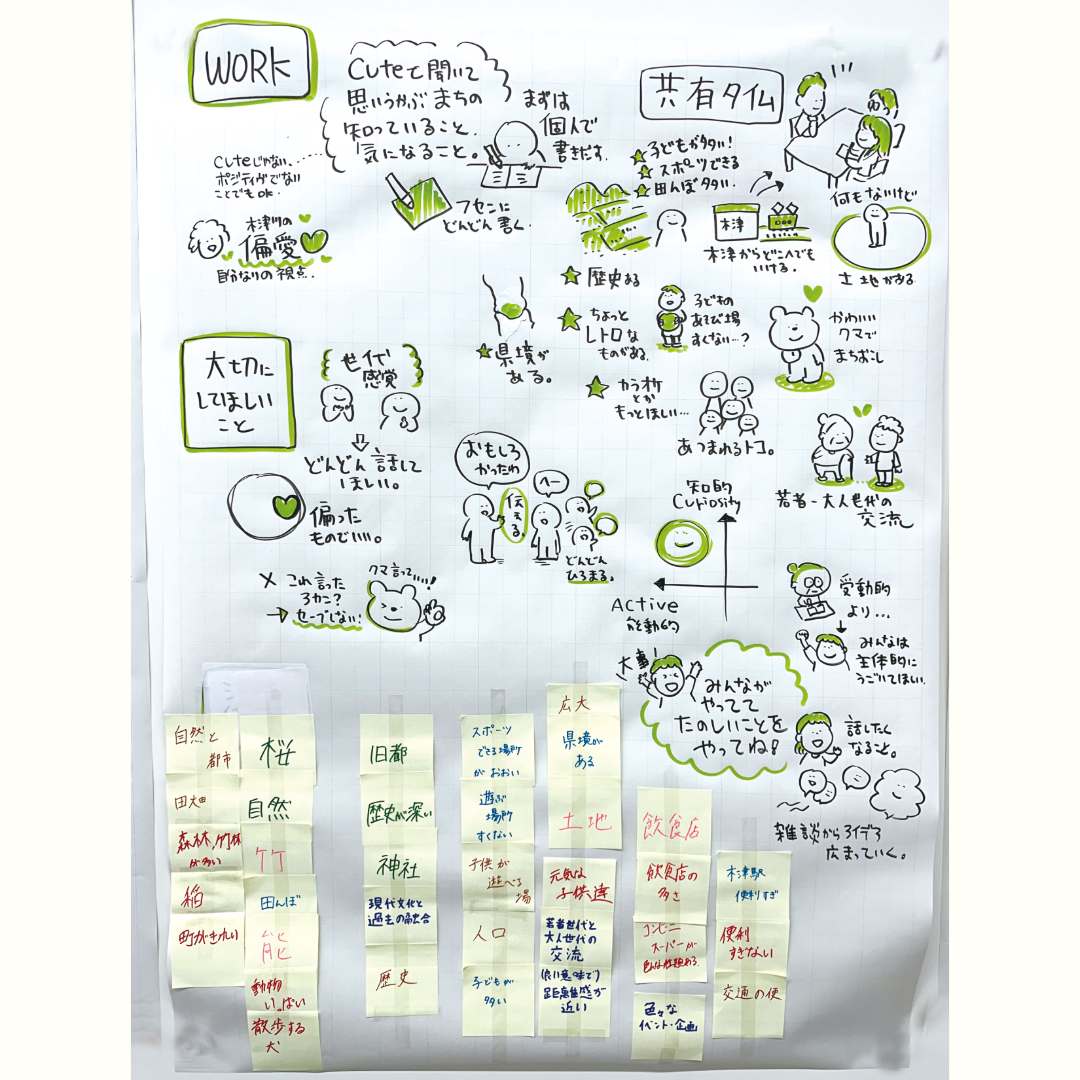 WORK
Cuteと聞いて
思いうかぶまちの
知っていること、
気になること。
まずは
個人で
書きだす。
Cuteじゃない、
ポジティヴでない
ことでもOK
フセンに
どんどん書く。
木津川の
偏愛
自分なりの視点.
共有タイム
子どもが多い!
スポーツできる
田んぼ多い.
木津
木津からどこへでも
いける.
何もないけど
土地がある
歴史ある
ちょっと
レトロな
ものがある.
子どもの
あそび場
すくない…?
かわいい
クマで
まちおこし
県境が
ある。
カラオケ
とか
もっとほしい…
あつまれるトコ。
若者-大人世代の
交流
大切に
してほしい
こと
世代
感覚
どんどん話して
ほしい。
偏った
ものでいい。
おもしろ
かったわ
伝える.
へー
どんどん
ひろまる。
× これ言った
アカン?
→セーブしない!
クマ言って…!
知的
Curiosity
Active
能動的
受動的
より…
みんなは
主体的に
うごいてほしい.
大事!
みんなが
やってて
たのしいことを
やってね!
話したく
なること。
雑談からアイデア
広まっていく。
自然と
都市
田畑
森林、竹林
が多い
稲
町がきれい
桜
自然
竹
田んぼ
熊
動物
いっぱい
散歩する
犬
旧都
歴史が深い
神社
現代文化と
過去の融合
歴史
スポーツ
できる場所
がおおい
遊ぶ
場所
すくない
子供が
遊べる
場
人口
子どもが
多い
広大
県境が
ある
土地
元気な
子供達
若者世代と
大人世代の
交流
(良い意味で)
距離感が
近い
飲食店
飲食店の
多さ
コンビニ
スーパーが
色んな種類ある.
色々な
イベント・企画
木津駅
便利すぎ
便利
すぎない
交通の便